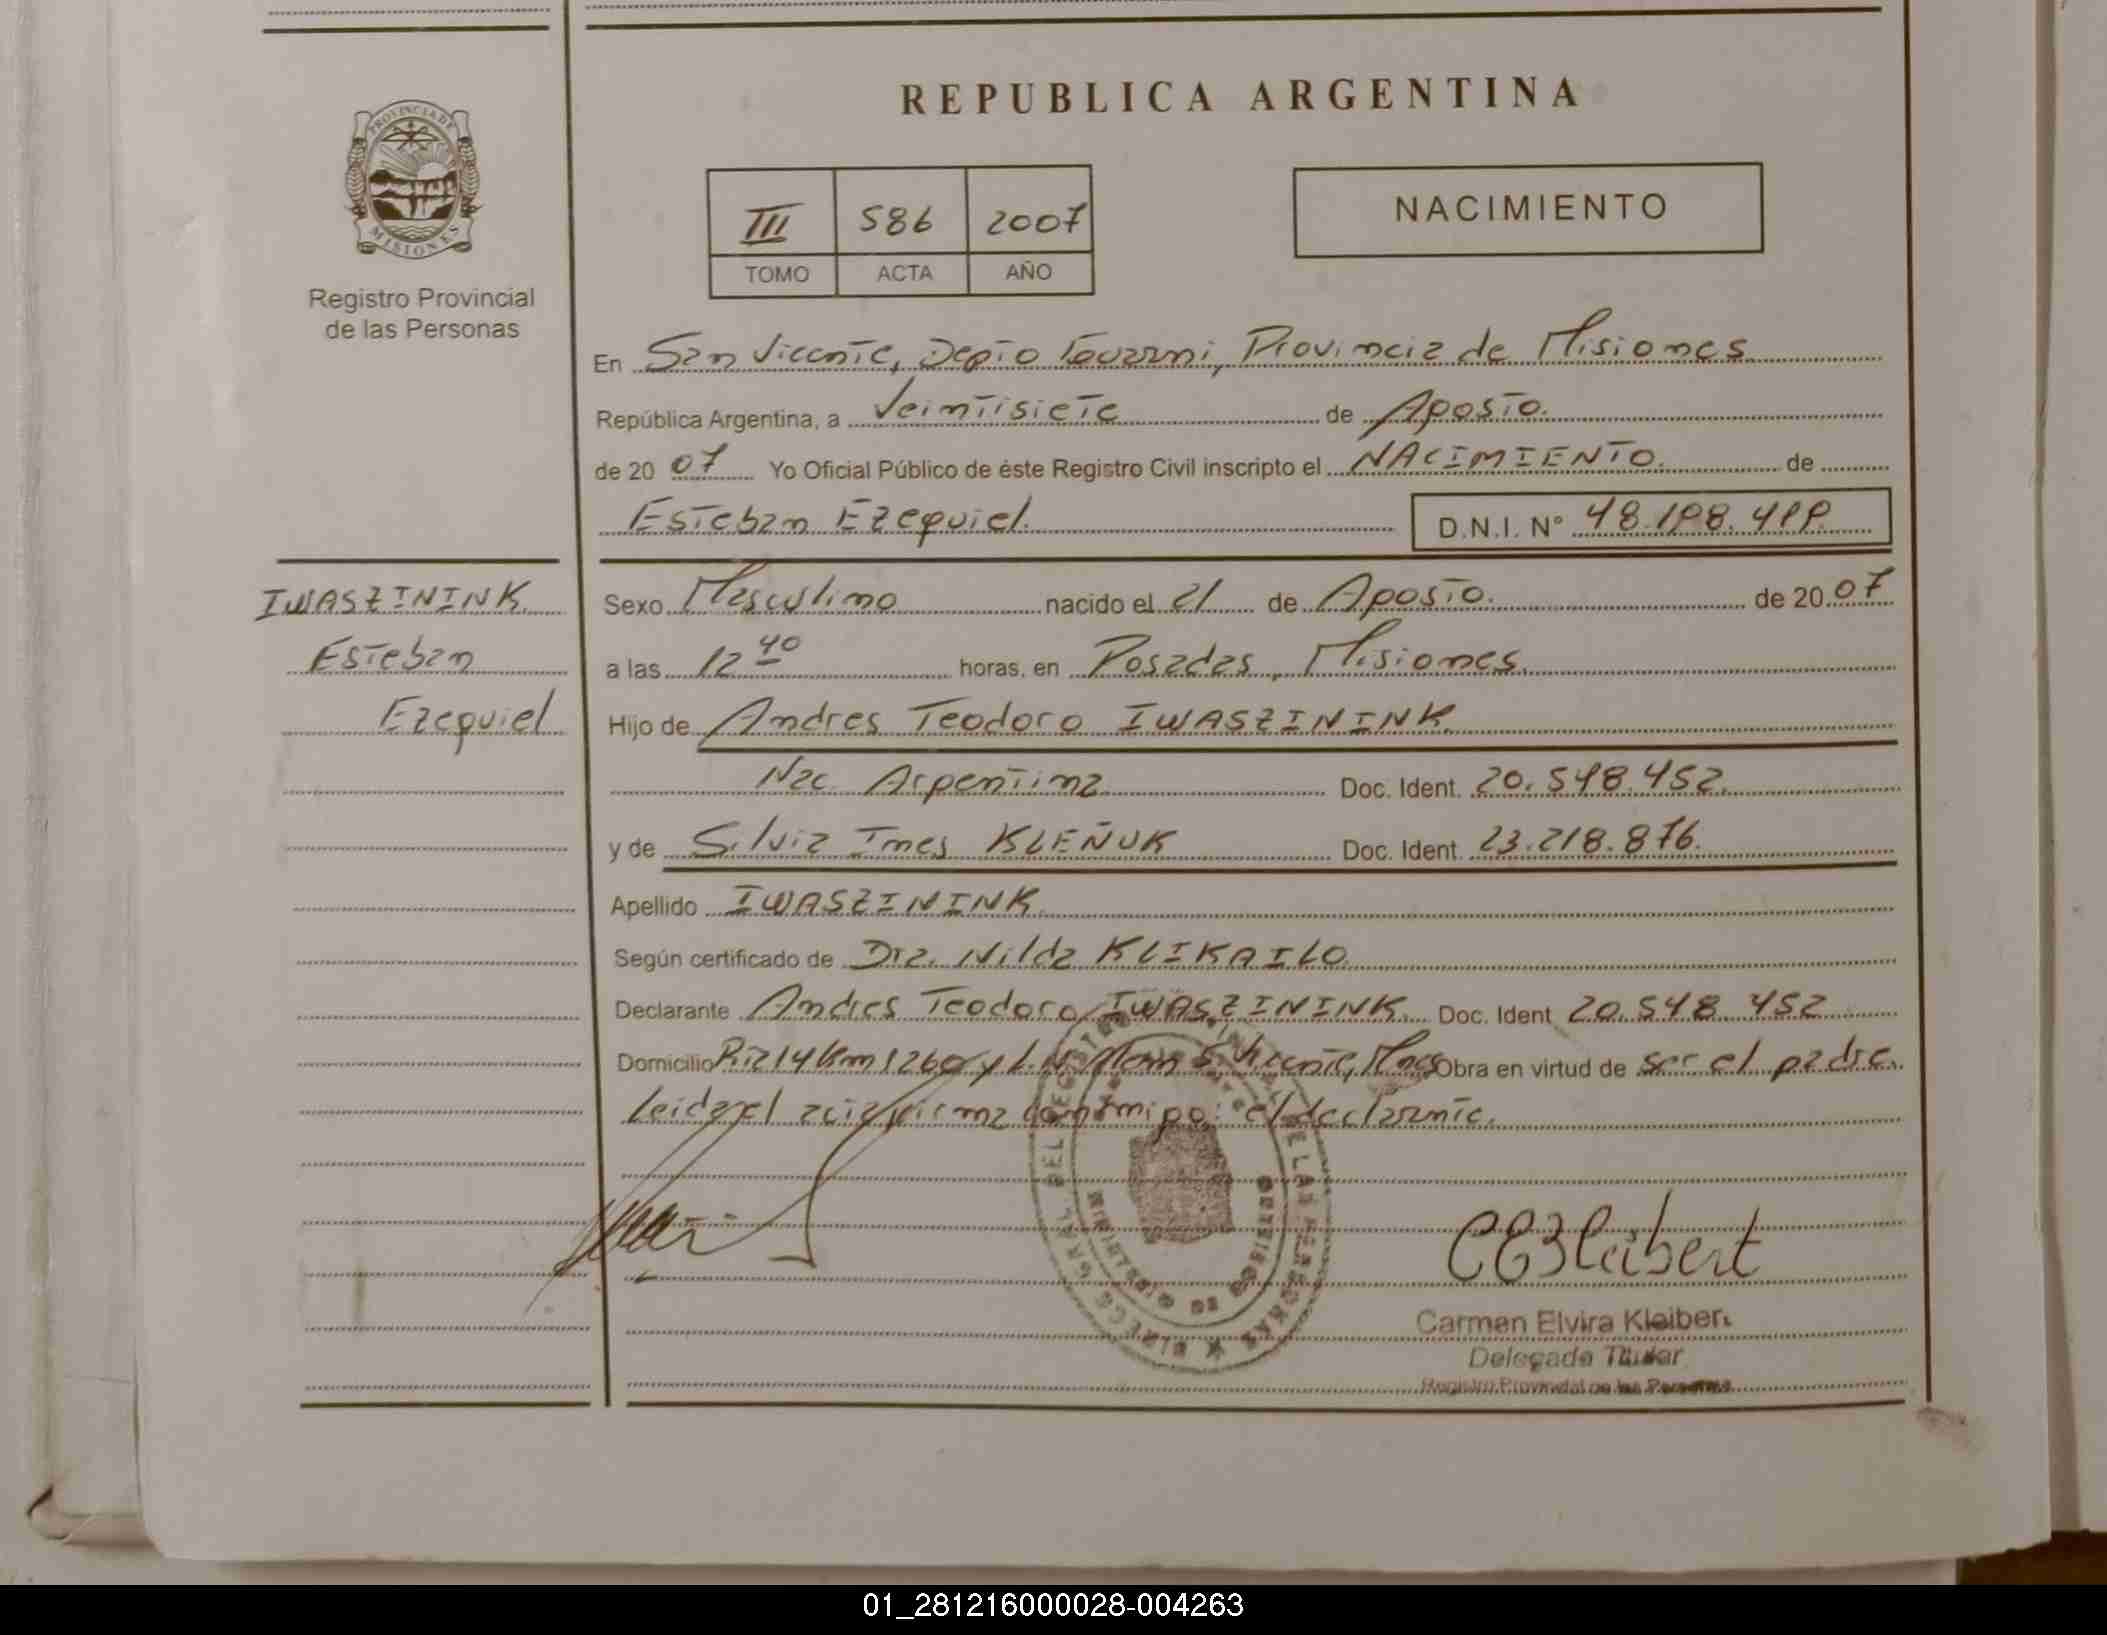 REPUBLICA ARGENTINA
PROVINCIA DE
MISIONES
Registro Provincial
de las Personas
III 586 2007
TOMO ACTA AÑO
NACIMIENTO
En San Vicente, Depto Guarani, Provincia de Misiones
República Argentina, a Veintisiete de Agosto.
de 20 07 Yo Oficial Público de éste Registro Civil inscripto el NACIMIENTO. de
Esteban Ezequiel. D.N.I. Nº 48.198.499.
IWASZININK
Esteban
Ezequiel
Sexo Masculino nacido el 21 de Agosto. de 20 07
a las 12 40 horas, en Posadas, Misiones.
Hijo de Andres Teodoro IWASZININK
Nac. Argentina Doc. Ident. 20.548.452.
y de Silvia Ines KLEÑUK Doc. Ident. 23.218.876.
Apellido IWASZININK.
Según certificado de Dra. Nilda KLIKAILO.
Declarante Andres Teodoro IWASZININK. Doc. Ident 20.548.452
Domicilio Rta 14 Km 1260 y S. Vicente, Mnes Obra en virtud de ser el padre.
Leida el acta firma conmigo: el declarante.
Carmen Elvira Kleibert
Delegada Titular
Registro Provincial de las Personas
01_281216000028-004263